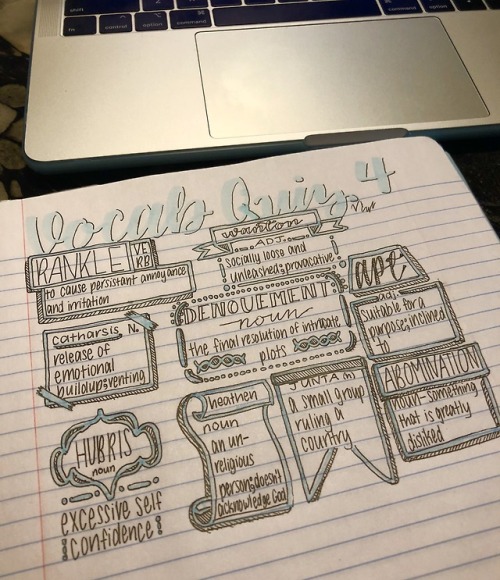 Vocab Quiz 4
RANKLE VERB
to cause persistant annoyance
and irritation
wanton
ADJ.
socially loose and
unleashed; provacative
apt
adj.
suitable for a
purpose; inclined
to
DENOUEMENT
noun
the final resolution of intricate
plots
catharsis N.
release of
emotional
buildup; venting
ABOMINATION
noun-something
that is greatly
disliked
HUBRIS
noun
excessive self
confidence
heathen
noun
an un-
religious
person; doesn't
acknowledge God
JUNTA (n)
a small group
ruling a
country
shift
fn
control
option
command
command
option